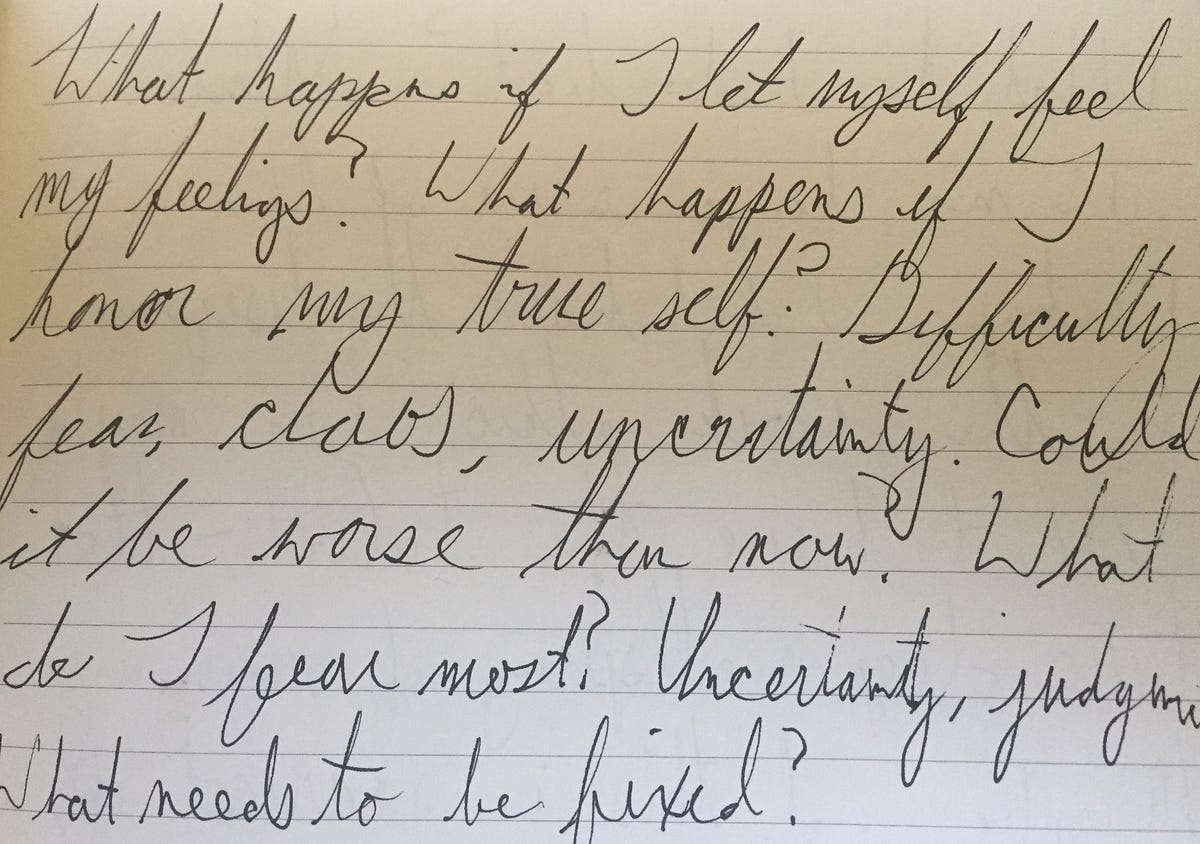 What happens if I let myself feel
my feelings? What happens if I
honor my true self? Difficulty
fear, chaos, uncertainty. Could
it be worse then now? What
do I fear most? Uncertainty, judgm
What needs to be fixed?